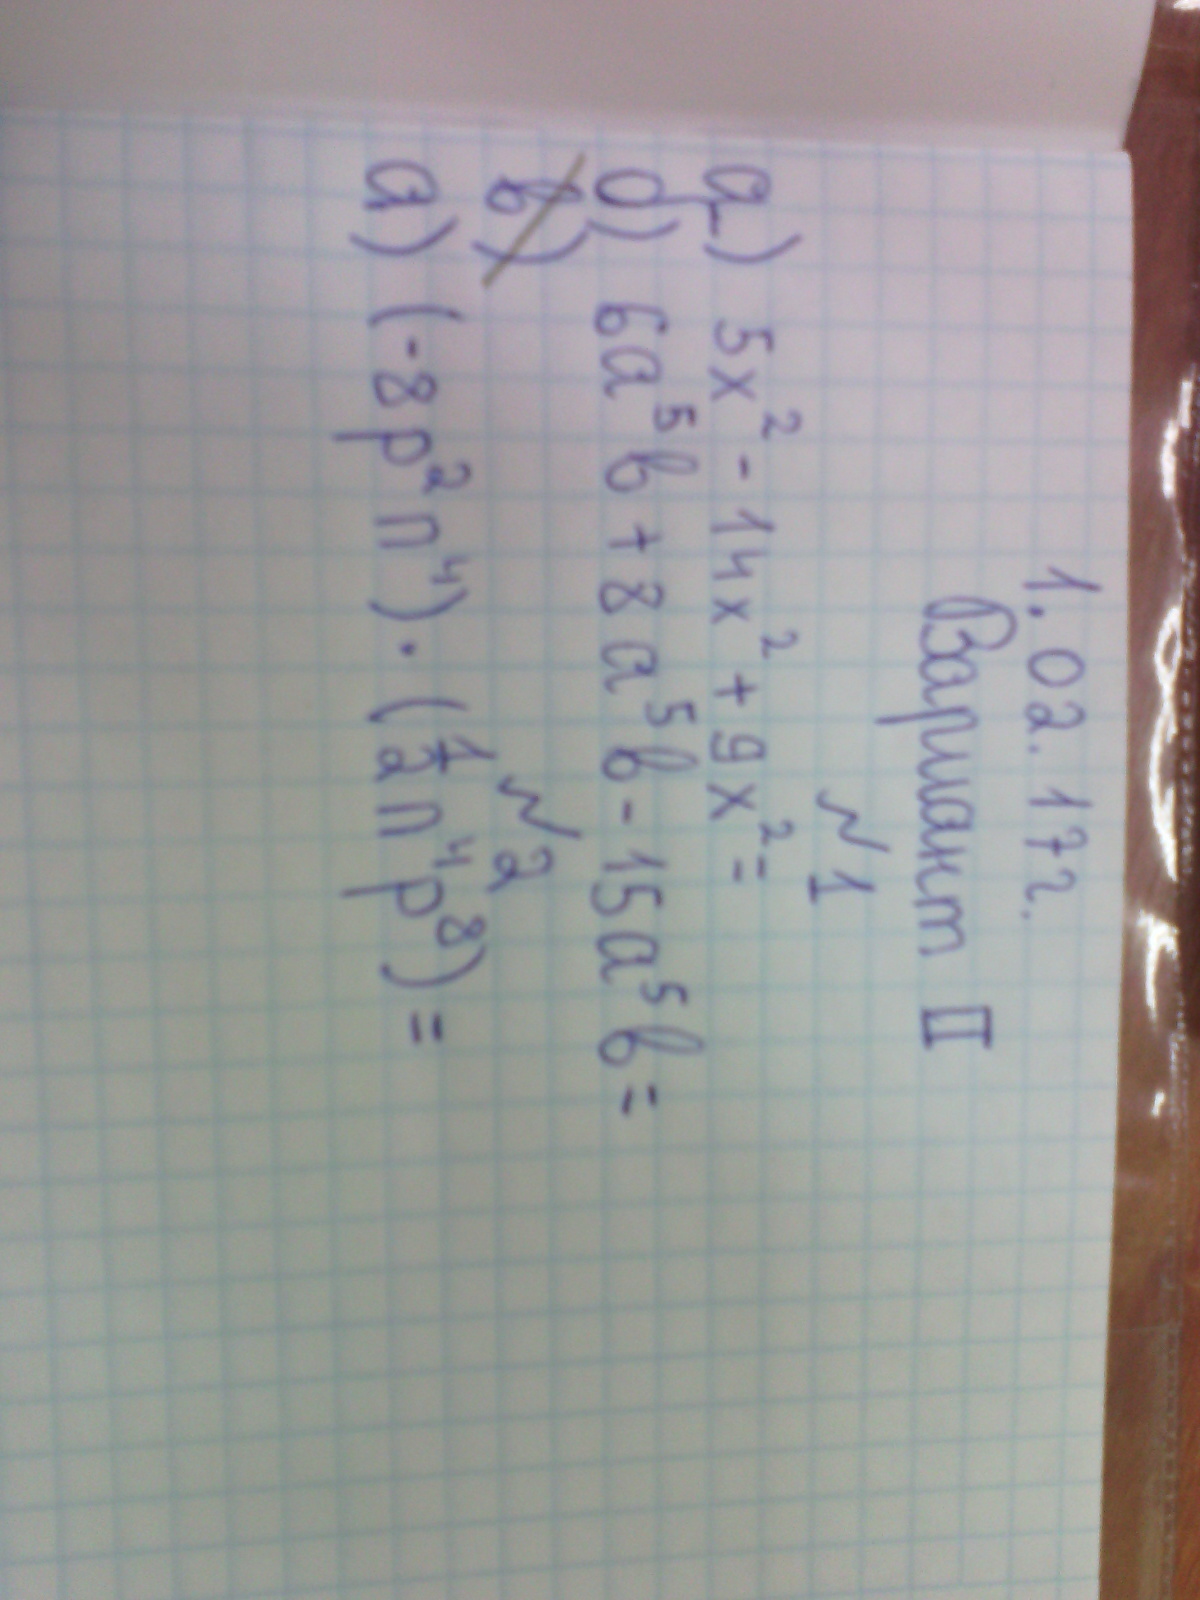 1.02.17г.
Вариант II
~1
а) 5x² - 14x² + 9x² =
б) 6a⁵b + 8a⁵b - 15a⁵b =
в) ~2
а) (-8p²n⁴) · (½n⁴p⁸) =